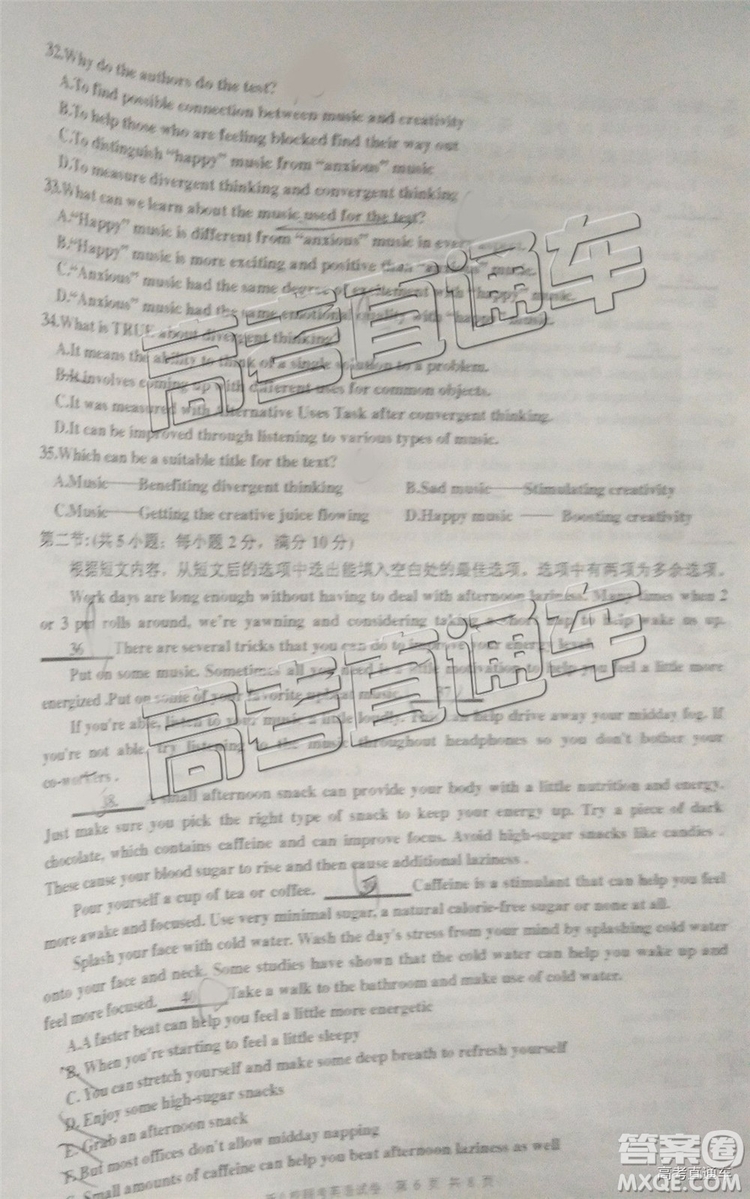 32.Why do the authors do the test?
A.To find possible connection between music and creativity
B.To help those who are feeling blocked find their way out
C.To distinguish “happy” music from “anxious” music
D.To measure divergent thinking and convergent thinking
33.What can we learn about the music used for the test?
A.“Happy” music is different from “anxious” music in every
B.“Happy” music is more exciting and positive than “anxious” music.
C.“Anxious” music had the same degree of excitement with “happy” music.
D.“Anxious” music had the same emotional quality with “happy” music.
34.What is TRUE about divergent thinking?
A.It means the ability to think of a single solution to a problem.
B.It involves coming up with different uses for common objects.
C.It was measured with Alternative Uses Task after convergent thinking.
D.It can be improved through listening to various types of music.
35.Which can be a suitable title for the text?
A.Music——Benefiting divergent thinking B.Sad music——Stimulating creativity
C.Music——Getting the creative juice flowing D.Happy music —— Boosting creativity
第二节:(共5小题;每小题2分,满分10分)
根据短文内容,从短文后的选项中选出能填入空白处的最佳选项。选项中有两项为多余选项。
Work days are long enough without having to deal with afternoon laziness. Many times when 2
or 3 pm rolls around, we're yawning and considering taking a short nap to help wake us up.
36 There are several tricks that you can do to improve your energy level.
Put on some music. Sometimes all you need is a little motivation to help you feel a little more
energized .Put on some of your favorite upbeat music. 37
If you're able, listen to your music a little loudly. This can help drive away your midday fog. If
you're not able, try listening to the music throughout headphones so you don't bother your
co-workers .
38 A small afternoon snack can provide your body with a little nutrition and energy.
Just make sure you pick the right type of snack to keep your energy up. Try a piece of dark
chocolate, which contains caffeine and can improve focus. Avoid high-sugar snacks like candies .
These cause your blood sugar to rise and then cause additional laziness .
Pour yourself a cup of tea or coffee. 39 Caffeine is a stimulant that can help you feel
more awake and focused. Use very minimal sugar, a natural calorie-free sugar or none at all.
Splash your face with cold water. Wash the day's stress from your mind by splashing cold water
onto your face and neck. Some studies have shown that the cold water can help you wake up and
feel more focused. 40 Take a walk to the bathroom and make use of cold water.
A.A faster beat can help you feel a little more energetic
B. When you're starting to feel a little sleepy
C. You can stretch yourself and make some deep breath to refresh yourself
D. Enjoy some high-sugar snacks
E. Grab an afternoon snack
F. But most offices don't allow midday napping
Small amounts of caffeine can help you beat afternoon laziness as well
英语试卷 第 6 页 共 8 页
高考直通车
高考直通车
答案圈
高考直通车
MXQE.COM